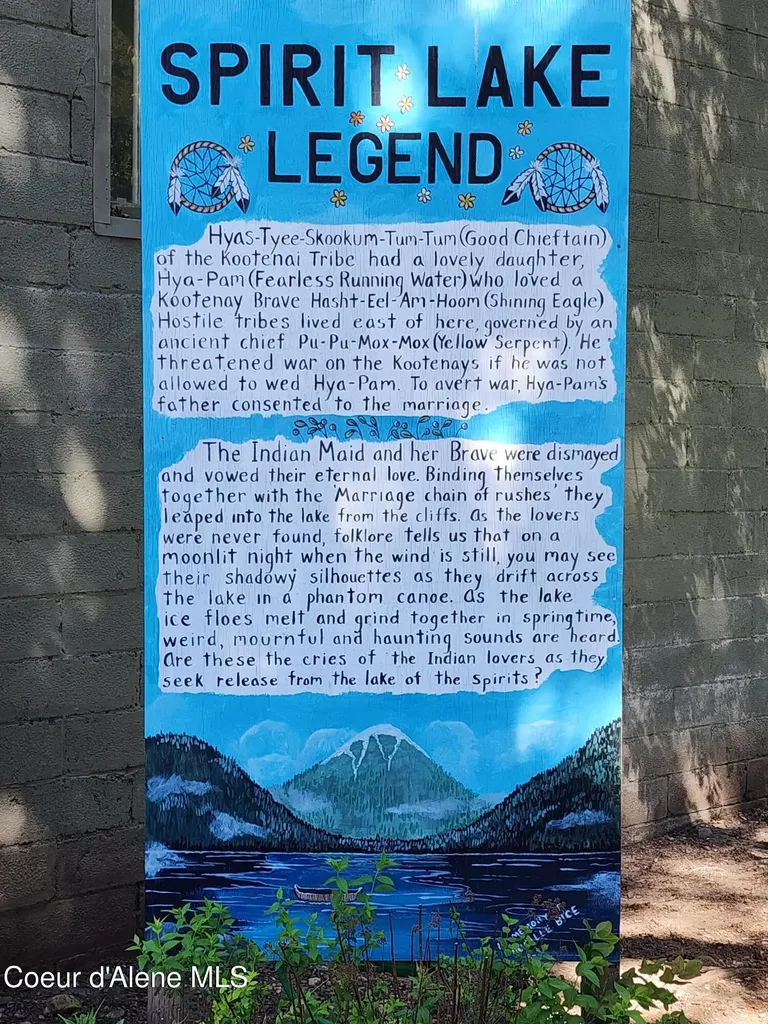 SPIRIT LAKE
LEGEND
Hyas-Tyee-Skookum-Tum-Tum (Good Chieftain)
of the Kootenai Tribe had a lovely daughter,
Hya-Pam (Fearless Running Water) who loved a
Kootenay Brave Hasht-Eel-Am-Hoom (Shining Eagle)
Hostile tribes lived east of here, governed by an
ancient chief Pu-Pu-Mox-Mox (Yellow Serpent). He
threatened war on the Kootenays if he was not
allowed to wed Hya-Pam. To avert war, Hya-Pam's
father consented to the marriage.
The Indian Maid and her Brave were dismayed
and vowed their eternal love. Binding themselves
together with the 'Marriage chain of rushes' they
leaped into the lake from the cliffs. As the lovers
were never found, folklore tells us that on a
moonlit night when the wind is still, you may see
their shadowy silhouettes as they drift across
the lake in a phantom canoe. As the lake
ice floes melt and grind together in springtime,
weird, mournful and haunting sounds are heard.
Are these the cries of the Indian lovers as they
seek release from the lake of the spirits?
RICE
Coeur d'Alene MLS